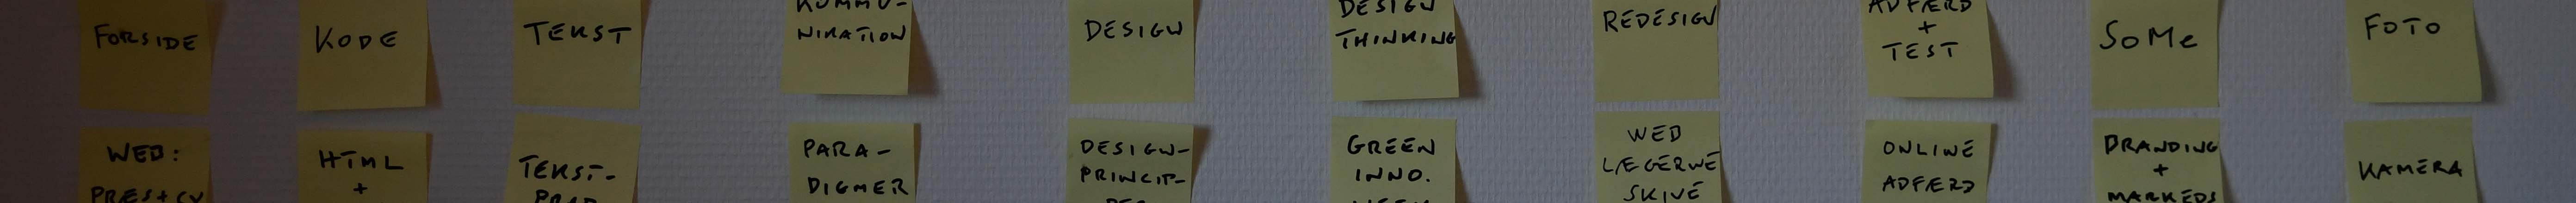 FORSIDE
KODE
TEKST
KOMMU-
NIKATION
DESIGN
DESIGN
THINKING
REDESIGN
ADFÆRD
+
TEST
SoMe
FOTO
WEB:
PRÆS+CV
HTML
+
TEKST-
PROD
PARA-
DIGMER
DESIGN-
PRINCIP-
PER
GREEN
INNO.
WEEK
WEB
LÆGERNE
SKIVE
ONLINE
ADFÆRD
BRANDING
+
MARKEDS
KAMERA